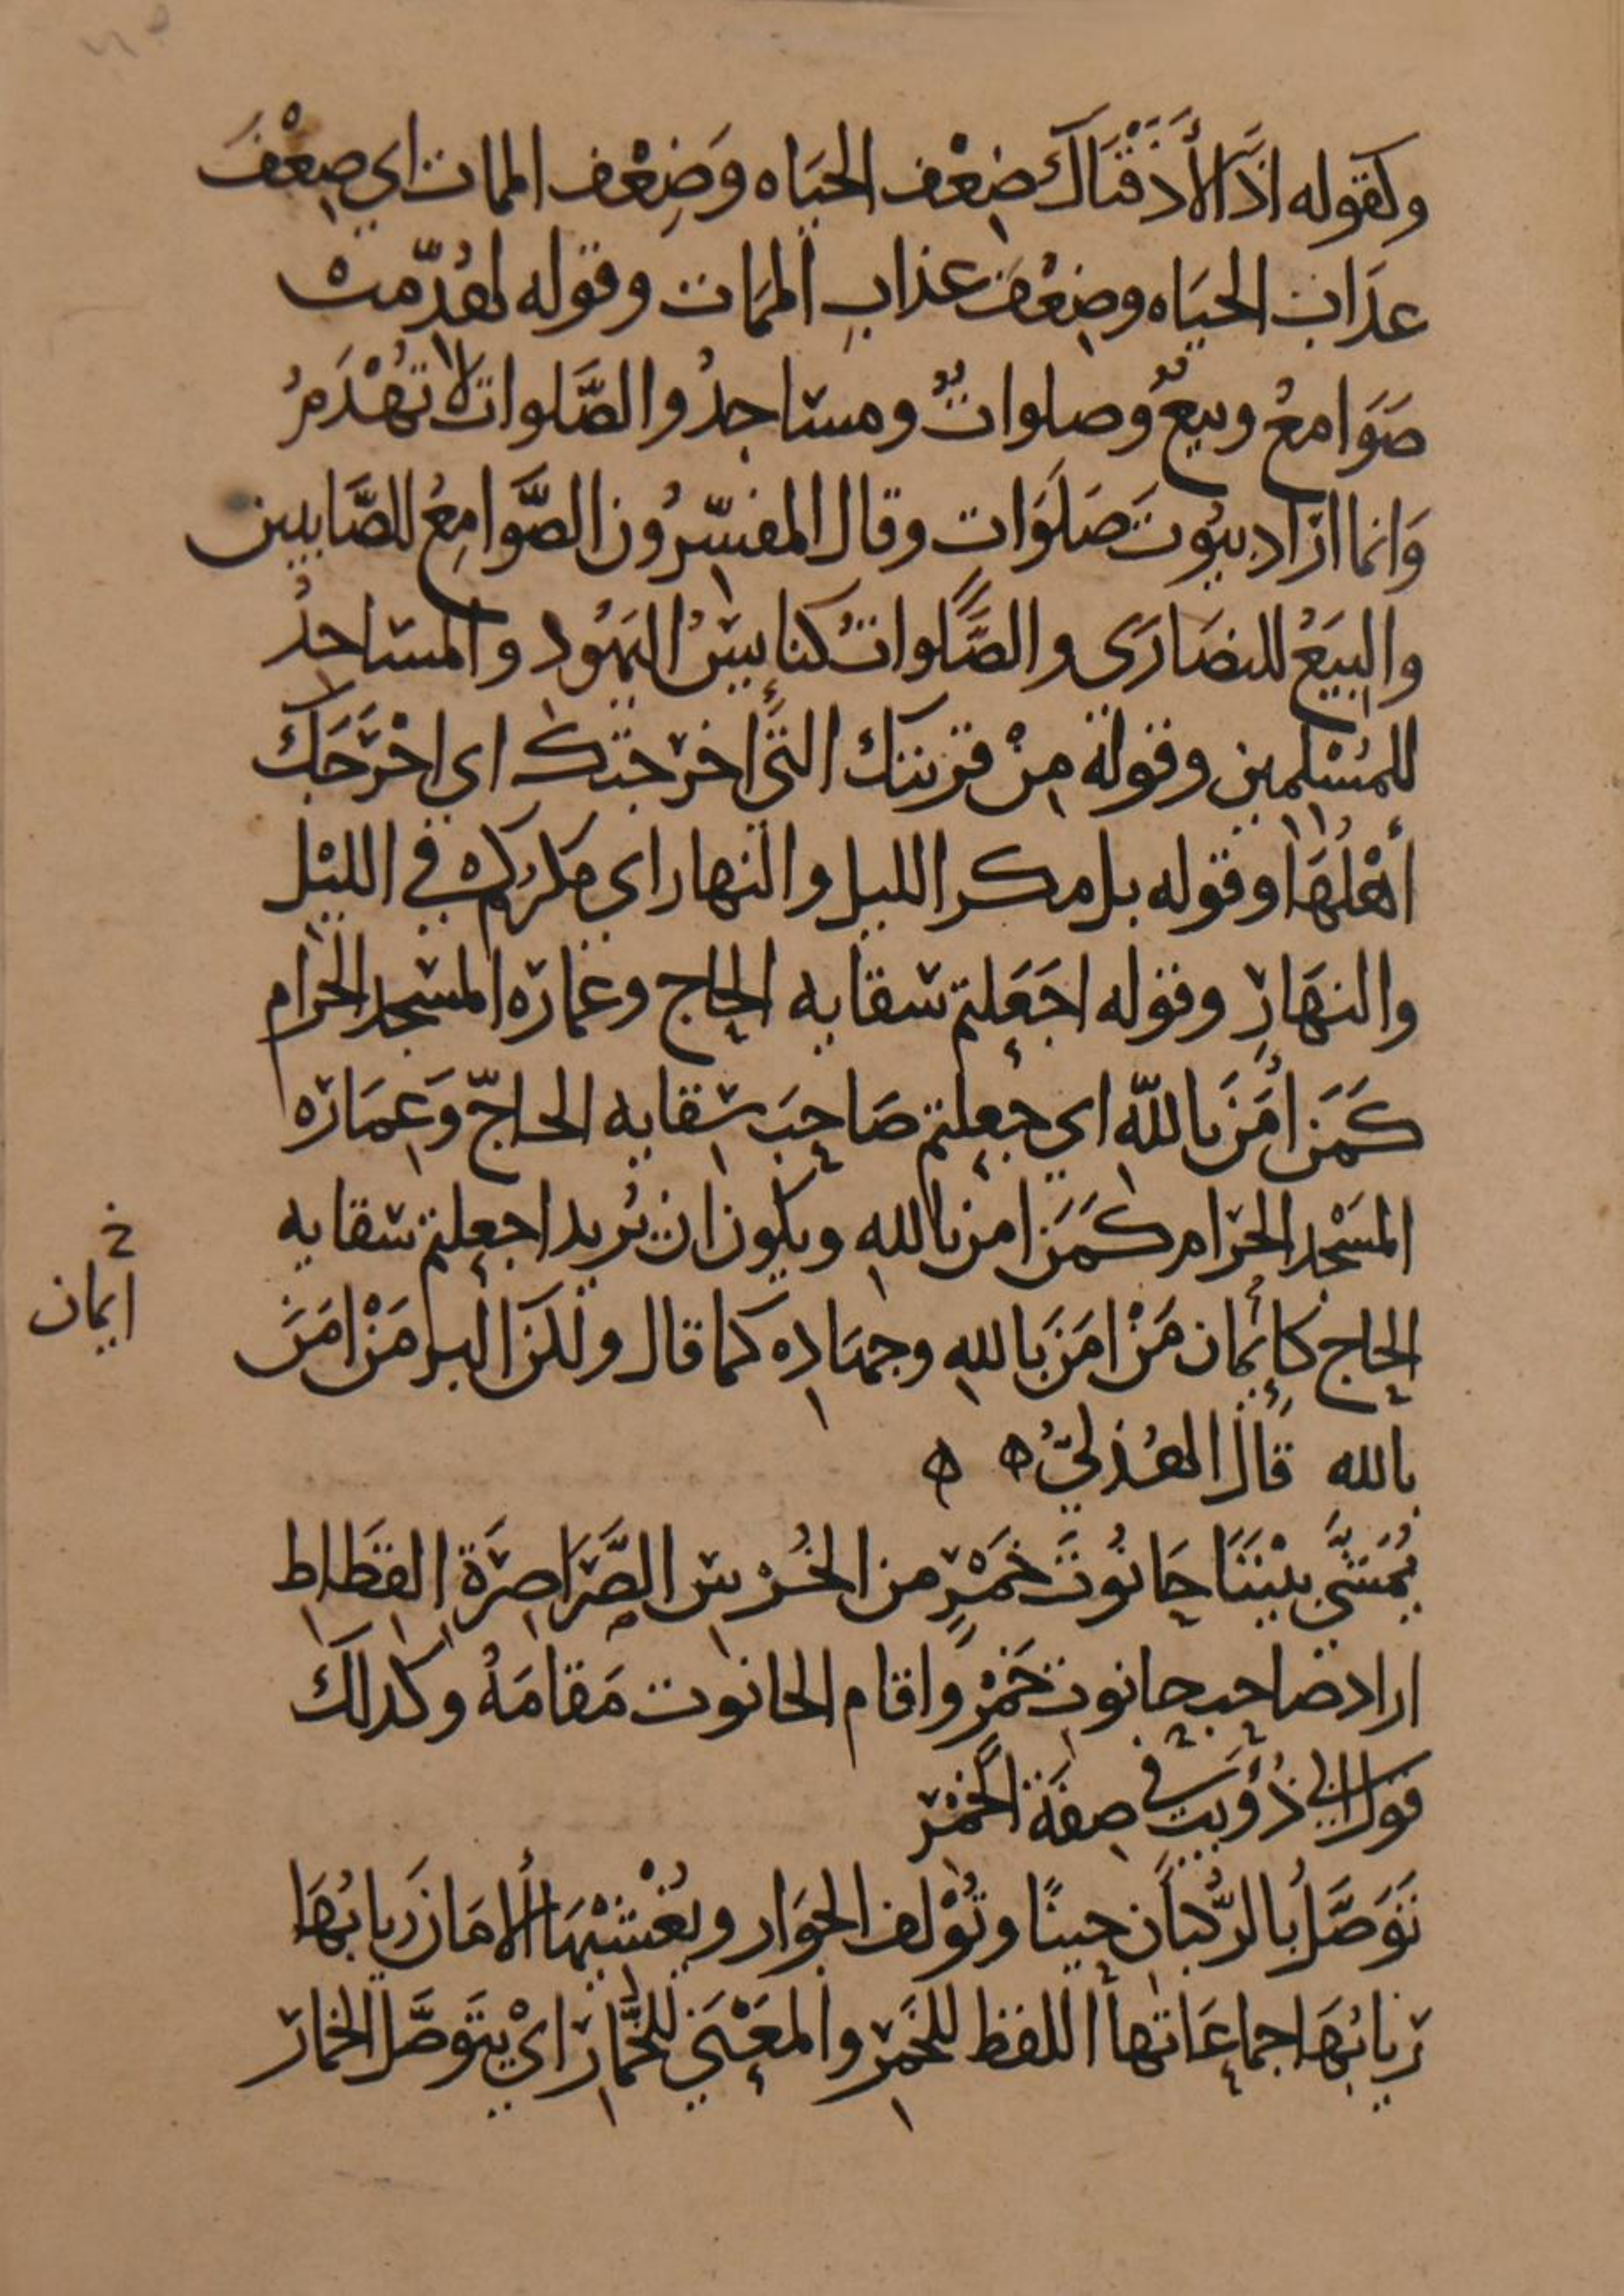 وكقوله اذًا لَأَذَقْنَاكَ ضِعْف الحيَاه وَضِعْف الممات اي ضِعْفَ
عذَاب الحيَاه وضِعْفَ عذابِ المَمات وقوله لهُدّمت
صَوَامعُ وبيعٌ وصلواتٌ ومساجدُ والصَّلوات لا تُهْدَمُ
وَانما ارَاد بيُوتَ صَلَوَاتٍ وقال المفسّرُون الصَّوامِعُ للصَّابيين
والبِيَعُ للنصَارَى والصَّلواتُ كنايِسُ اليَهُود والمسَاجدُ
للمُسْلِمين وقوله مِنْ قريتك التي اخرجتك اي اخْرَجَك
أهْلُهَا وقوله بل مكر الليل والنهار اي مكركم في الليْل
والنهَارِ وقوله اجَعَلتم سقايه الحاج وعمارَه المسْجد الحرام
كَمَن امَنَ بالله اي جعلتم صَاحِبَ سِقايه الحاجّ وَعِمَارَه
المسَجْد الحرام كَمَن امن باللهِ ويكون ان يُريد اجعلتم سقايه
الحاج كإيمان مَنْ امَنَ باللهِ وجهَاده كما قال ولكن البر مَنْ امَنَ
ايمان
بالله قَالَ الهُذليُّ
يُمَشّي بيْنَنَا حَانُوتَ خَمْرٍ من الخُرْسِ الصَّرَاصِرَةِ القِطَاطِ
اراد صَاحِب حانوت خَمْرٍ واقام الحانوت مَقامَهُ وكذلك
قول ابي ذُؤَيب في صِفَة الخَمْر
تَوَصَّلُ بالرُّكبَانِ حِينًا وتُؤْلف الجِوَار ويُغْشيْهَا الأمَانَ رِبابُهَا
رِبابُهَا جماعَاتها اللفظ للخَمْرِ والمعْنَى للخَمَّارِ ايْ يتَوصَّل الخمار